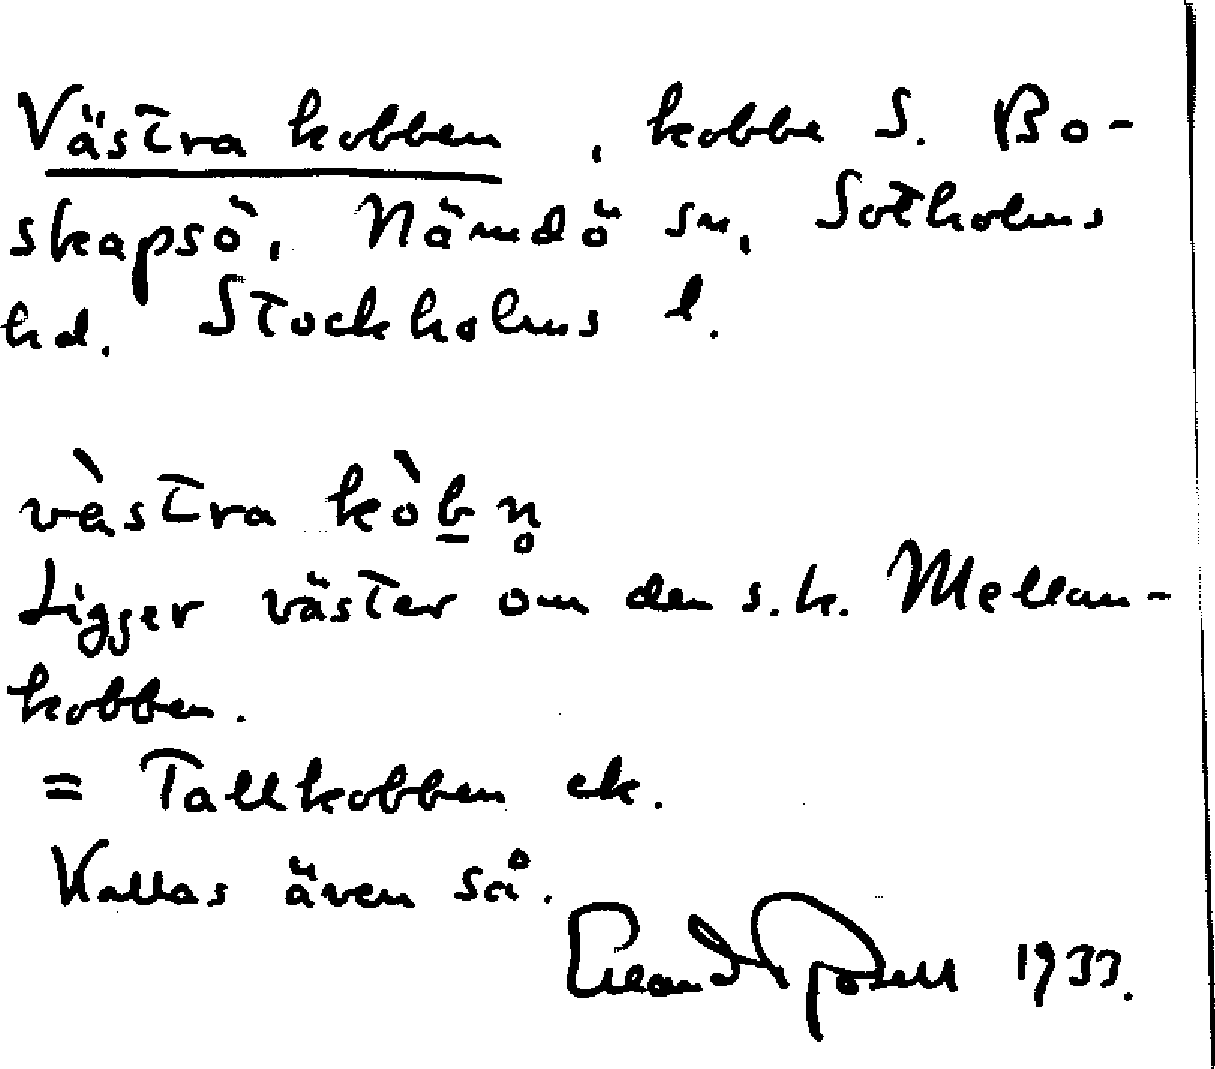 Västra kobben, kobbe S. Bo-
skapsö, Nämdö sn, Sotholms
hd. Stockholms l.
vàstra kòb̲n̥
Ligger väster om den s.k. Mellan-
kobben.
= Tallkobben ek.
Kallas även så.
Erland Rosell 1933.